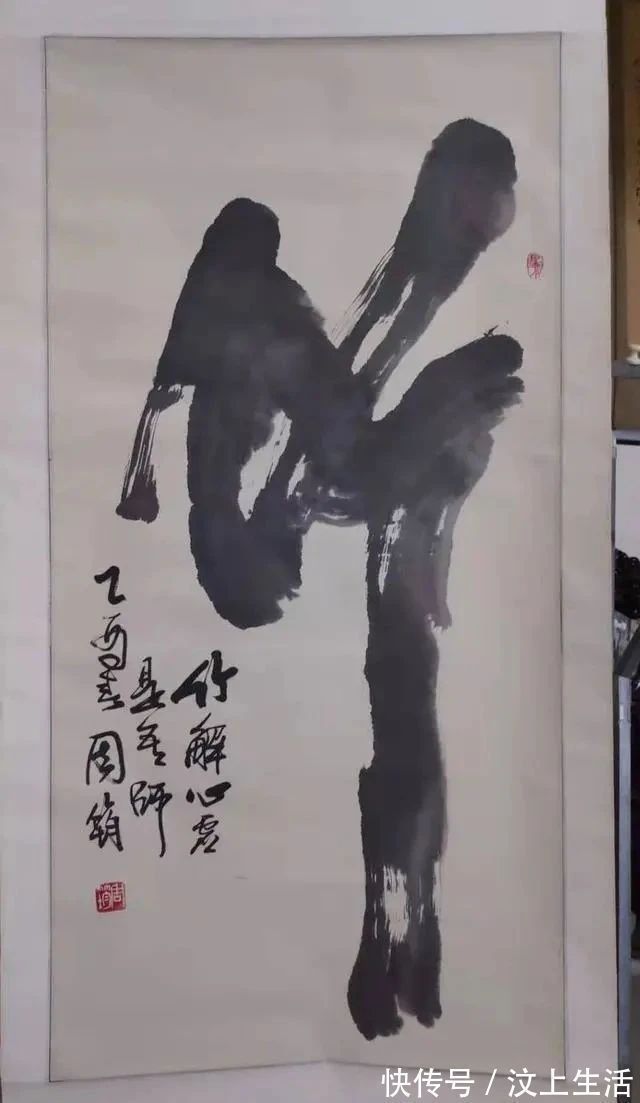 竹
竹解心虚
是吾师
乙酉春 周
快传号／汶上生活